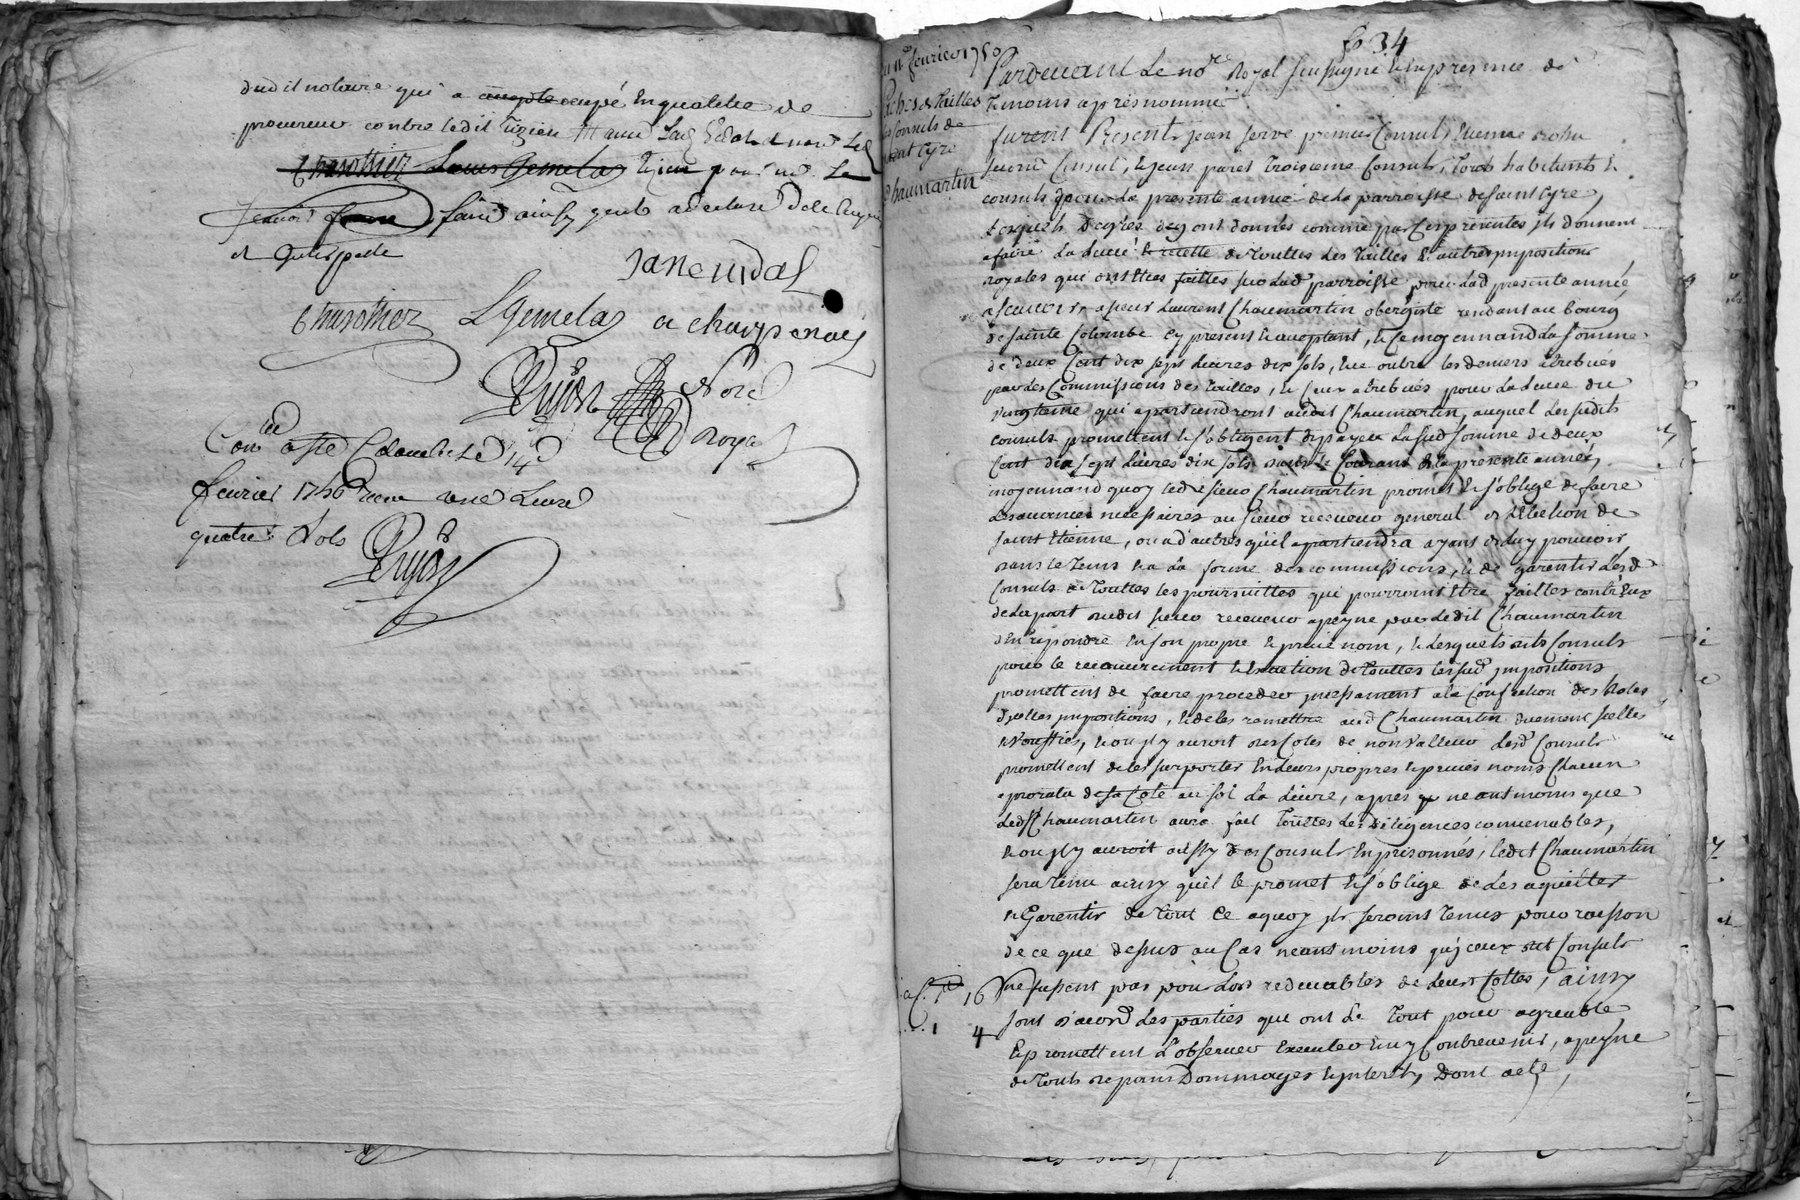 dudit notaire qui a occupé En qualitté de
procureur contre ledit
Chusottier Louis Gemelas
faitte ainsy
et
Jane uidal
Chusottier LGemelas a charpenay
Dujast Nore
Royal
Con.lle a Ste Colombe Le 14e
feurier 1750 receu une Liure
quatre Sols
Dujast
fo 34
du 11e feurier 1750
Paches de Tailles
les Consuls de
Saint Cyre
Chaumartin
Pardeuant Le nore Royal soussigné & En presence des
Temoins apres nommés
furent Presents Jean serve premier Consul, Etienne
second Consul, & Jean paret Troisieme Consul, Tous habitants &
consuls pour La presente année de La parroisse de saint Cyre,
Lesquels de grés ont donnés comme par Ces presentes ils donnent
a faire La Leuée & recette de Touttes Les Tailles & autres impositions
royales qui ont Etés faittes sur Lad parroisse pour Lad presente année,
a scauoir, a sieur Laurent Chaumartin obergiste residant au bourg
de sainte Colombe Cy present & acceptant, & Ce moyennand La somme
de deux Cent dix sept Liures dix sols, En outre les deniers attribués
par les Commissions des Tailles, & Ceux attribués pour La Leuée du
vingtieme qui apartiendront audit Chaumartin, auquel Lesdits
consuls promettent & s'obligent de payer Lasud somme de deux
Cent dix sept Liures dix sols dans le Courant de la presente année,
moyennand quoy led sieur Chaumartin promet & s'oblige de faire
Les auances necessaires au sieur receueur general de l'Election de
saint Etienne, ou a d'autres qu'il apartiendra ayant de luy pouuoir
dans le Tems & a La forme des commissions, & de garentir Lesd
Consuls de Touttes les poursuittes qui pourroint Etre faittes contre Eux
de la part dudit sieur receueur a peyne par Ledit Chaumartin
d'En repondre En son propre & priué nom, & Lesquels dits Consuls
pour le recouurement & Exaction de Touttes lessud impositions
promettent de faire proceder incessament a la Confection des Roles
d'icelles impositions, & de les remettre aud Chaumartin duement scellés
& veriffiés, & ou il y auroit des Cotes de non valleur Lesd Consuls
promettent de les suporter En Leurs propres & priués noms Chacun
a prorata de sa Cote au sol La Liure, apres neantmoins que
Ledit Chaumartin aura fait Touttes Les diligences conuenables,
& ou il y auroit aussy des Consuls Enprisonnés, ledit Chaumartin
sera Tenu ainsy qu'il le promet & s'oblige de Les aquitter
& Garentir de Tout Ce aquoy ils seroint Tenus pour raison
de ce que dessus au Cas neantmoins qu'iceux dit Consuls
ne fussent pas pour Lors redeuables de Leurs Cottes, ainsy
sont d'acord Les parties qui ont Le Tout pour agreable
& promettent L'obseruer Executer & n'y Contreuenir, a peyne
de Touts depans Dommages & interets, Dont acte,
16
1 4